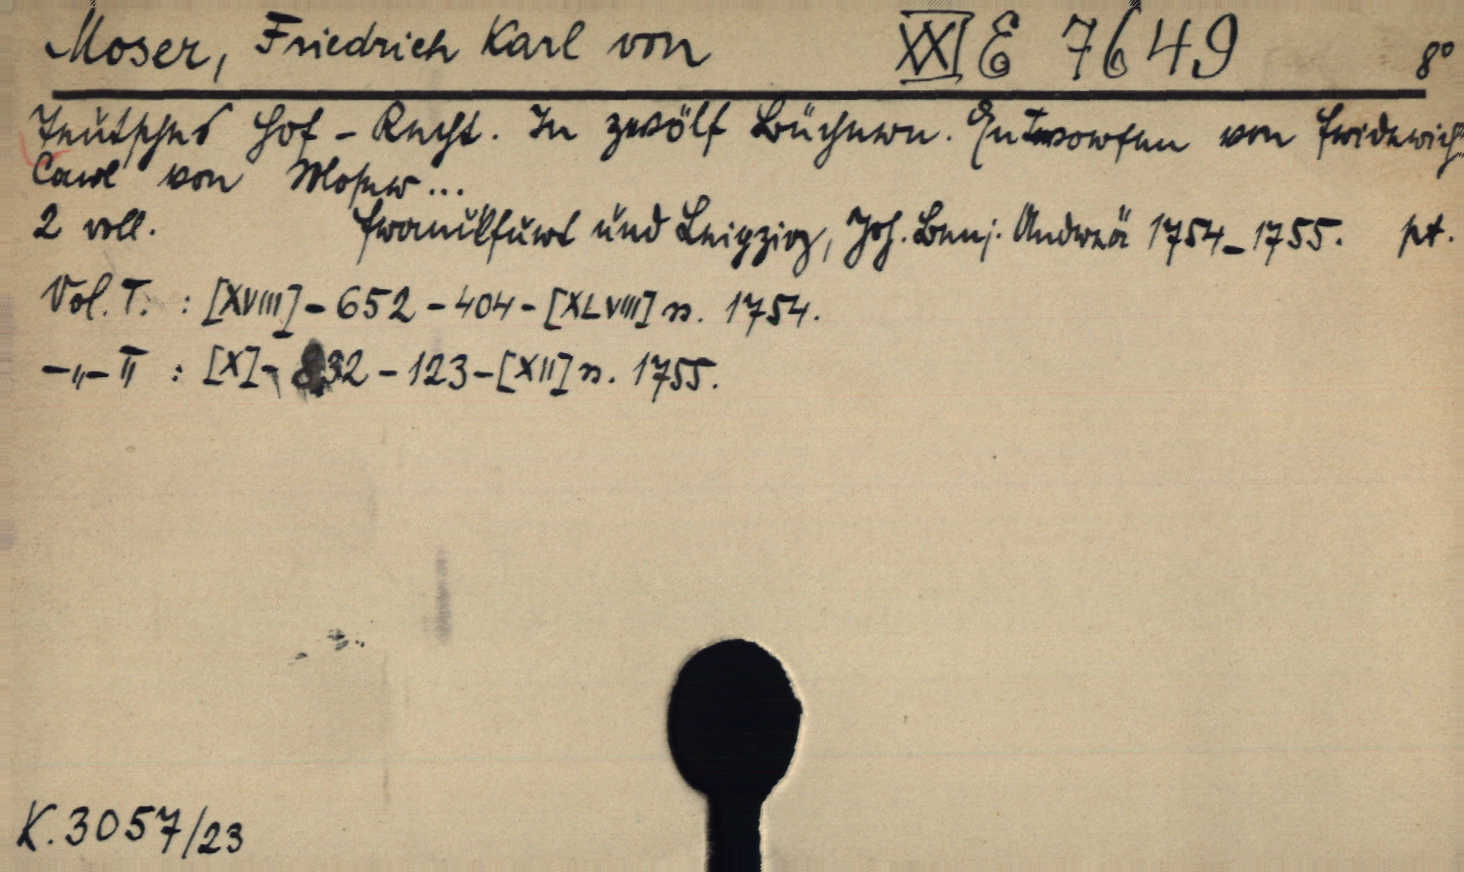 Moser, Friedrich Karl von XXI E 7649 8°
Teutsches Hof-Recht. In zwölf Büchern. Entworfen von Friderich
Carl von Moser...
2 voll. Franckfurt und Leipzig, Joh. Benj. Andreä 1754-1755. pt.
Vol. I. : [XVIII]-652-404-[XLVIII] n. 1754.
-„- II : [X]-832-123-[XII] n. 1755.
K.3057/23